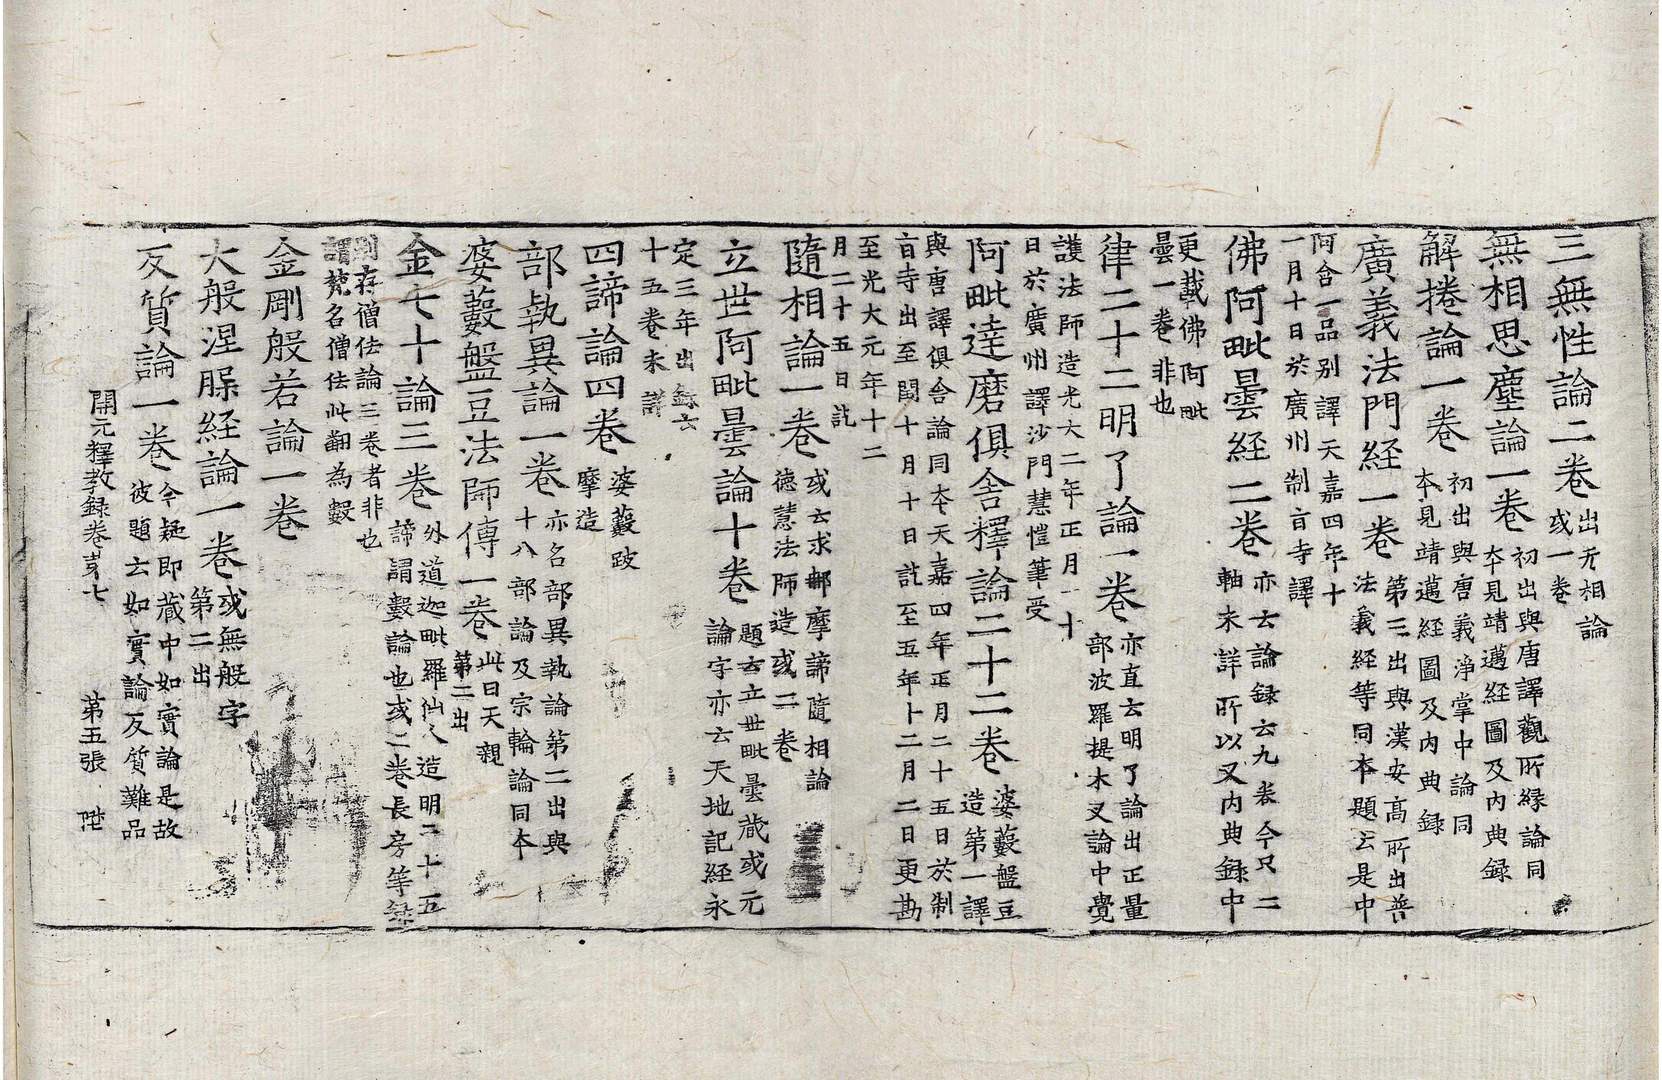 三無性論二卷 出无相論或一卷
無相思塵論一卷 初出與唐譯觀所縁論同本見靖邁経圖及内典録
解捲論一卷 初出與唐義淨掌中論同本見靖邁経圖及内典録
廣義法門経一卷 第三出與漢安髙所出普法義経等同本題云是中
阿含一品别譯天嘉四年十一月十日於廣州制旨寺譯
佛阿毗曇経二卷 亦云論録云九卷今只二軸未詳所以又内典録中
更載佛阿毗曇一卷非也
律二十二明了論一卷 亦直云明了論出正量部波羅提木叉論中覺
護法師造光大二年正月十日於廣州譯沙門慧愷筆受
阿毗達磨俱舎釋論二十二卷 婆藪盤豆造第一譯
與唐譯俱舎論同本天嘉四年正月二十五日於制旨寺出至閏十月十日訖至五年十二月二日更勘
至光大元年十二月二十五日訖
隨相論一卷 或云求那摩諦隨相論德慧法師造或二卷
立世阿毗曇論十卷 題云立世毗曇蔵或元論字亦云天地記経永
定三年出録云十五卷未詳
四諦論四卷 婆藪跋摩造
部執異論一卷 亦名部異執論第二出與十八部論及宗輪論同本
婆藪盤豆法師傳一卷 此曰天親第二出
金七十論三卷 外道迦毗羅仙人造明二十五諦謂數論也或二卷長房等録
别存僧佉論三卷者非也謂梵名僧佉此翻為數
金剛般若論一卷
大般涅槃経論一卷 或無般字第二出
反質論一卷 今疑即蔵中如實論是故彼題云如實論反質難品
開元釋教録卷第七　第五張　陞